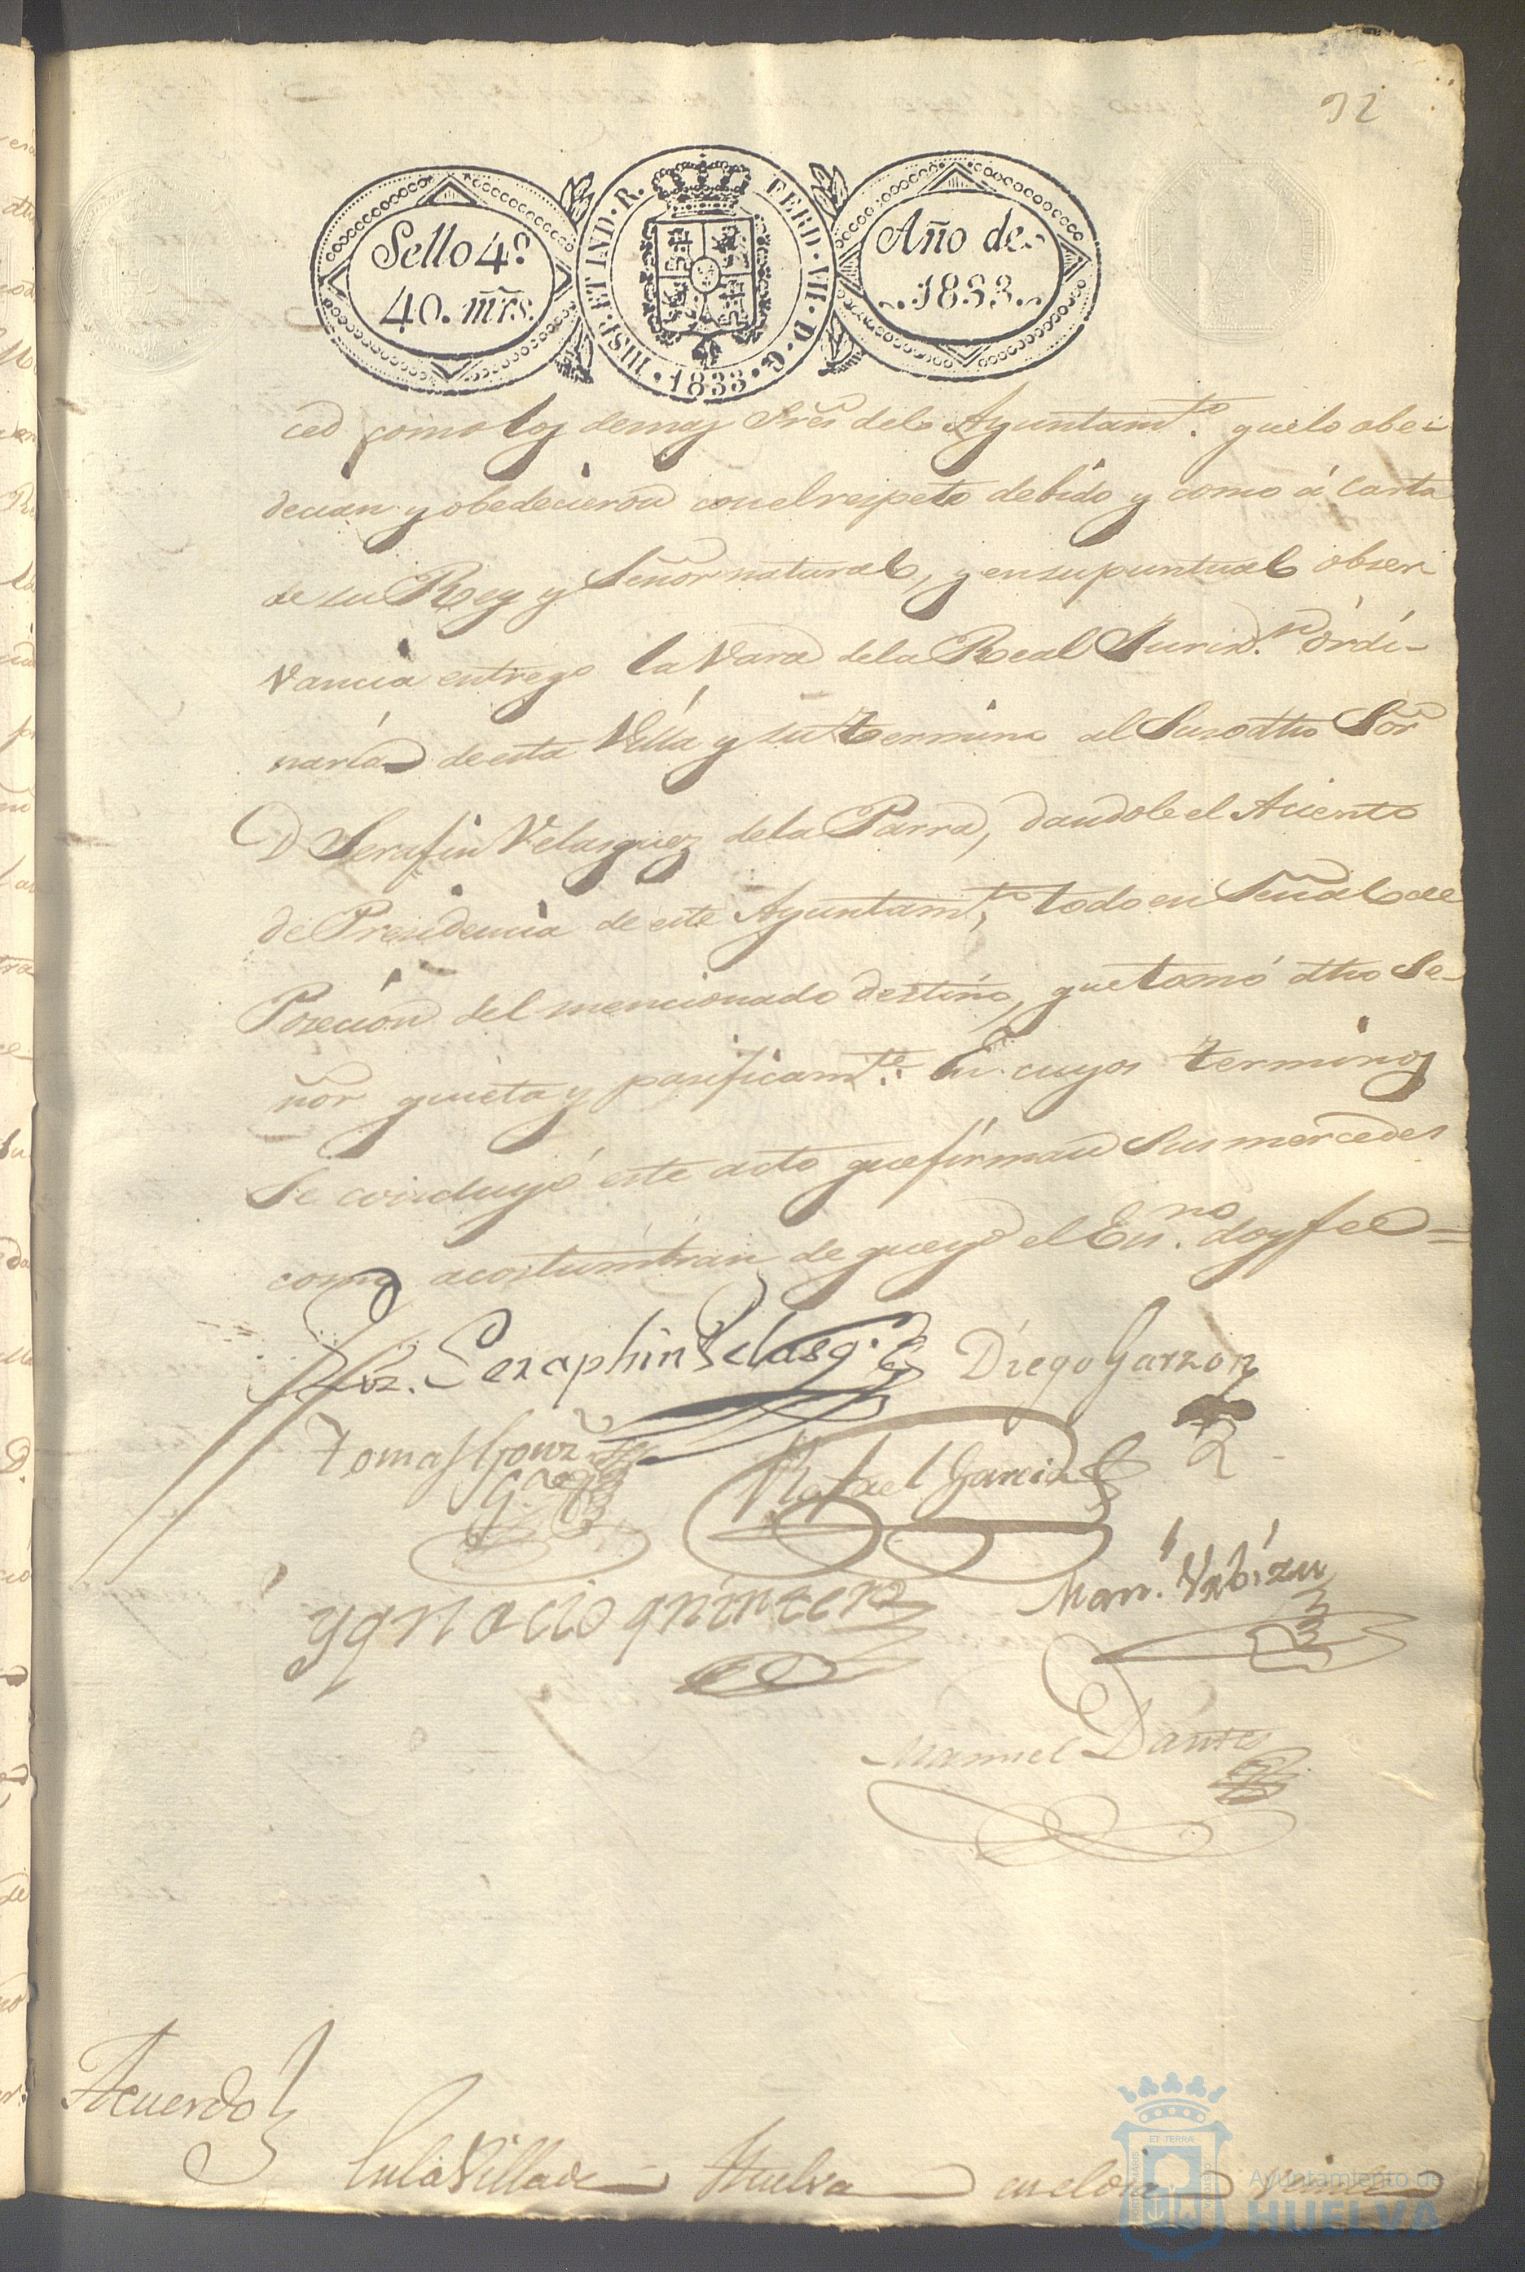 92
Sello 4º.
40. mr̃s.
HISP. ET IND. R. FERD. VII. D. G. 1833.
Año de
1833.
ced como los demas Sres del Ayuntamto. que lo obe-
decian y obedecieron con el respeto debido y como á Carta
de su Rey y Señor natural, y en su puntual obser-
vancia entrego la Vara de la Real Jurisdn. Ordi-
naria de esta Villa y su termino al Susodho Sor
D Serafin Velasquez de la Parra, dandole el Aciento
de Presidencia de este Ayuntamto, todo en Señal de
Poseción del mencionado destino, que tomó dho Se-
ñor quieta y pasificamte. En cuyos terminos
Se concluyó este acto que firman Sus mercedes
como acostumbran de que yo el Esno. doy fee=
Seraphin Velasq.
Diego Garzon
Tomas Gonz
Rafael Garcia
ygnacio quintero
Man. Vrbizu
Manuel Dantes
Acuerdo
En la Villa de Huelva en el dia veinte
ET TERRÆ
Ayuntamiento de
HUELVA